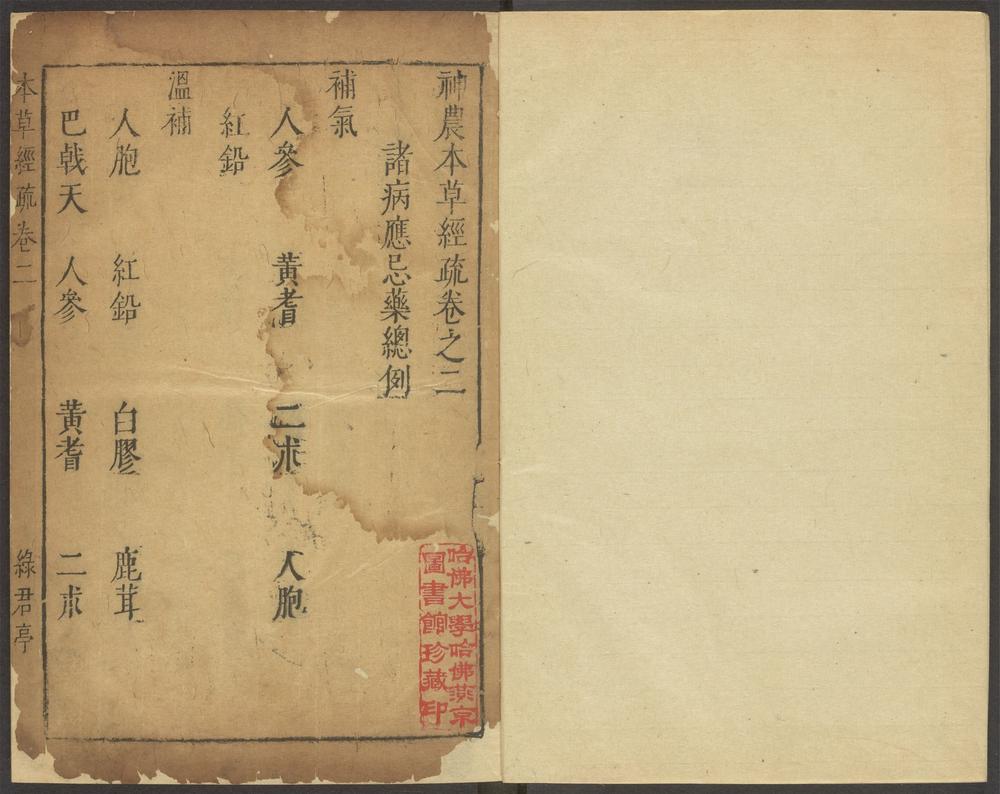 神農本草經疏卷之二
諸病應忌藥總例
補氣
人參 黃耆 二朮 人胞
紅鉛
溫補
人胞 紅鉛 白膠 鹿茸
巴戟天 人參 黃耆 二朮
本草經疏 卷二 綠君亭
哈佛大學哈佛燕京
圖書館珍藏印